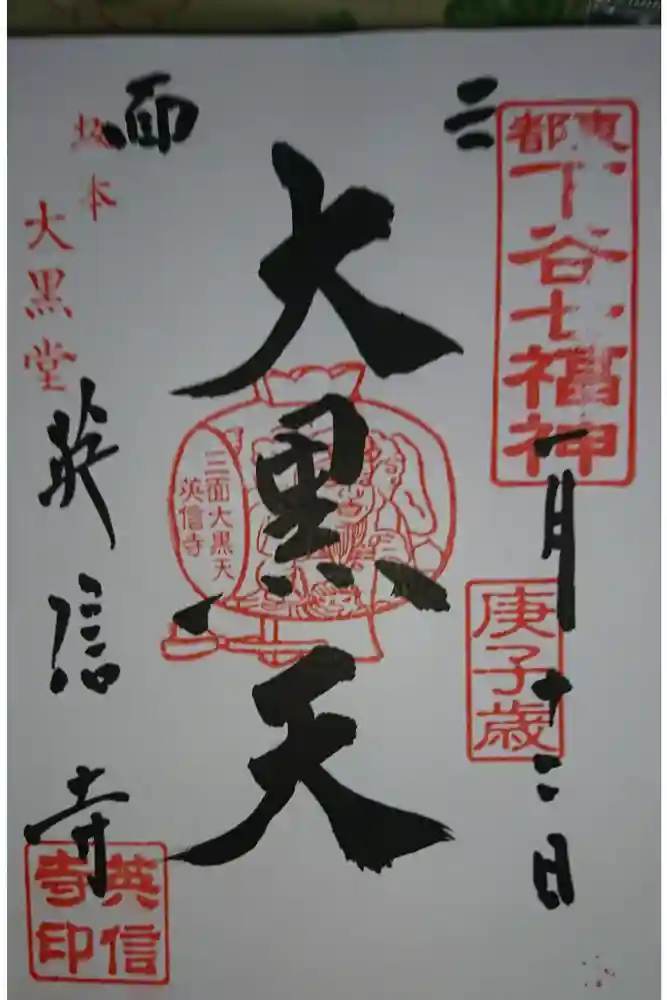 東都
下谷七福神
三面
一月十二日
庚子歳
大黒天
三面大黒天
英信寺
坂本
大黒堂
英信寺
英信
寺印